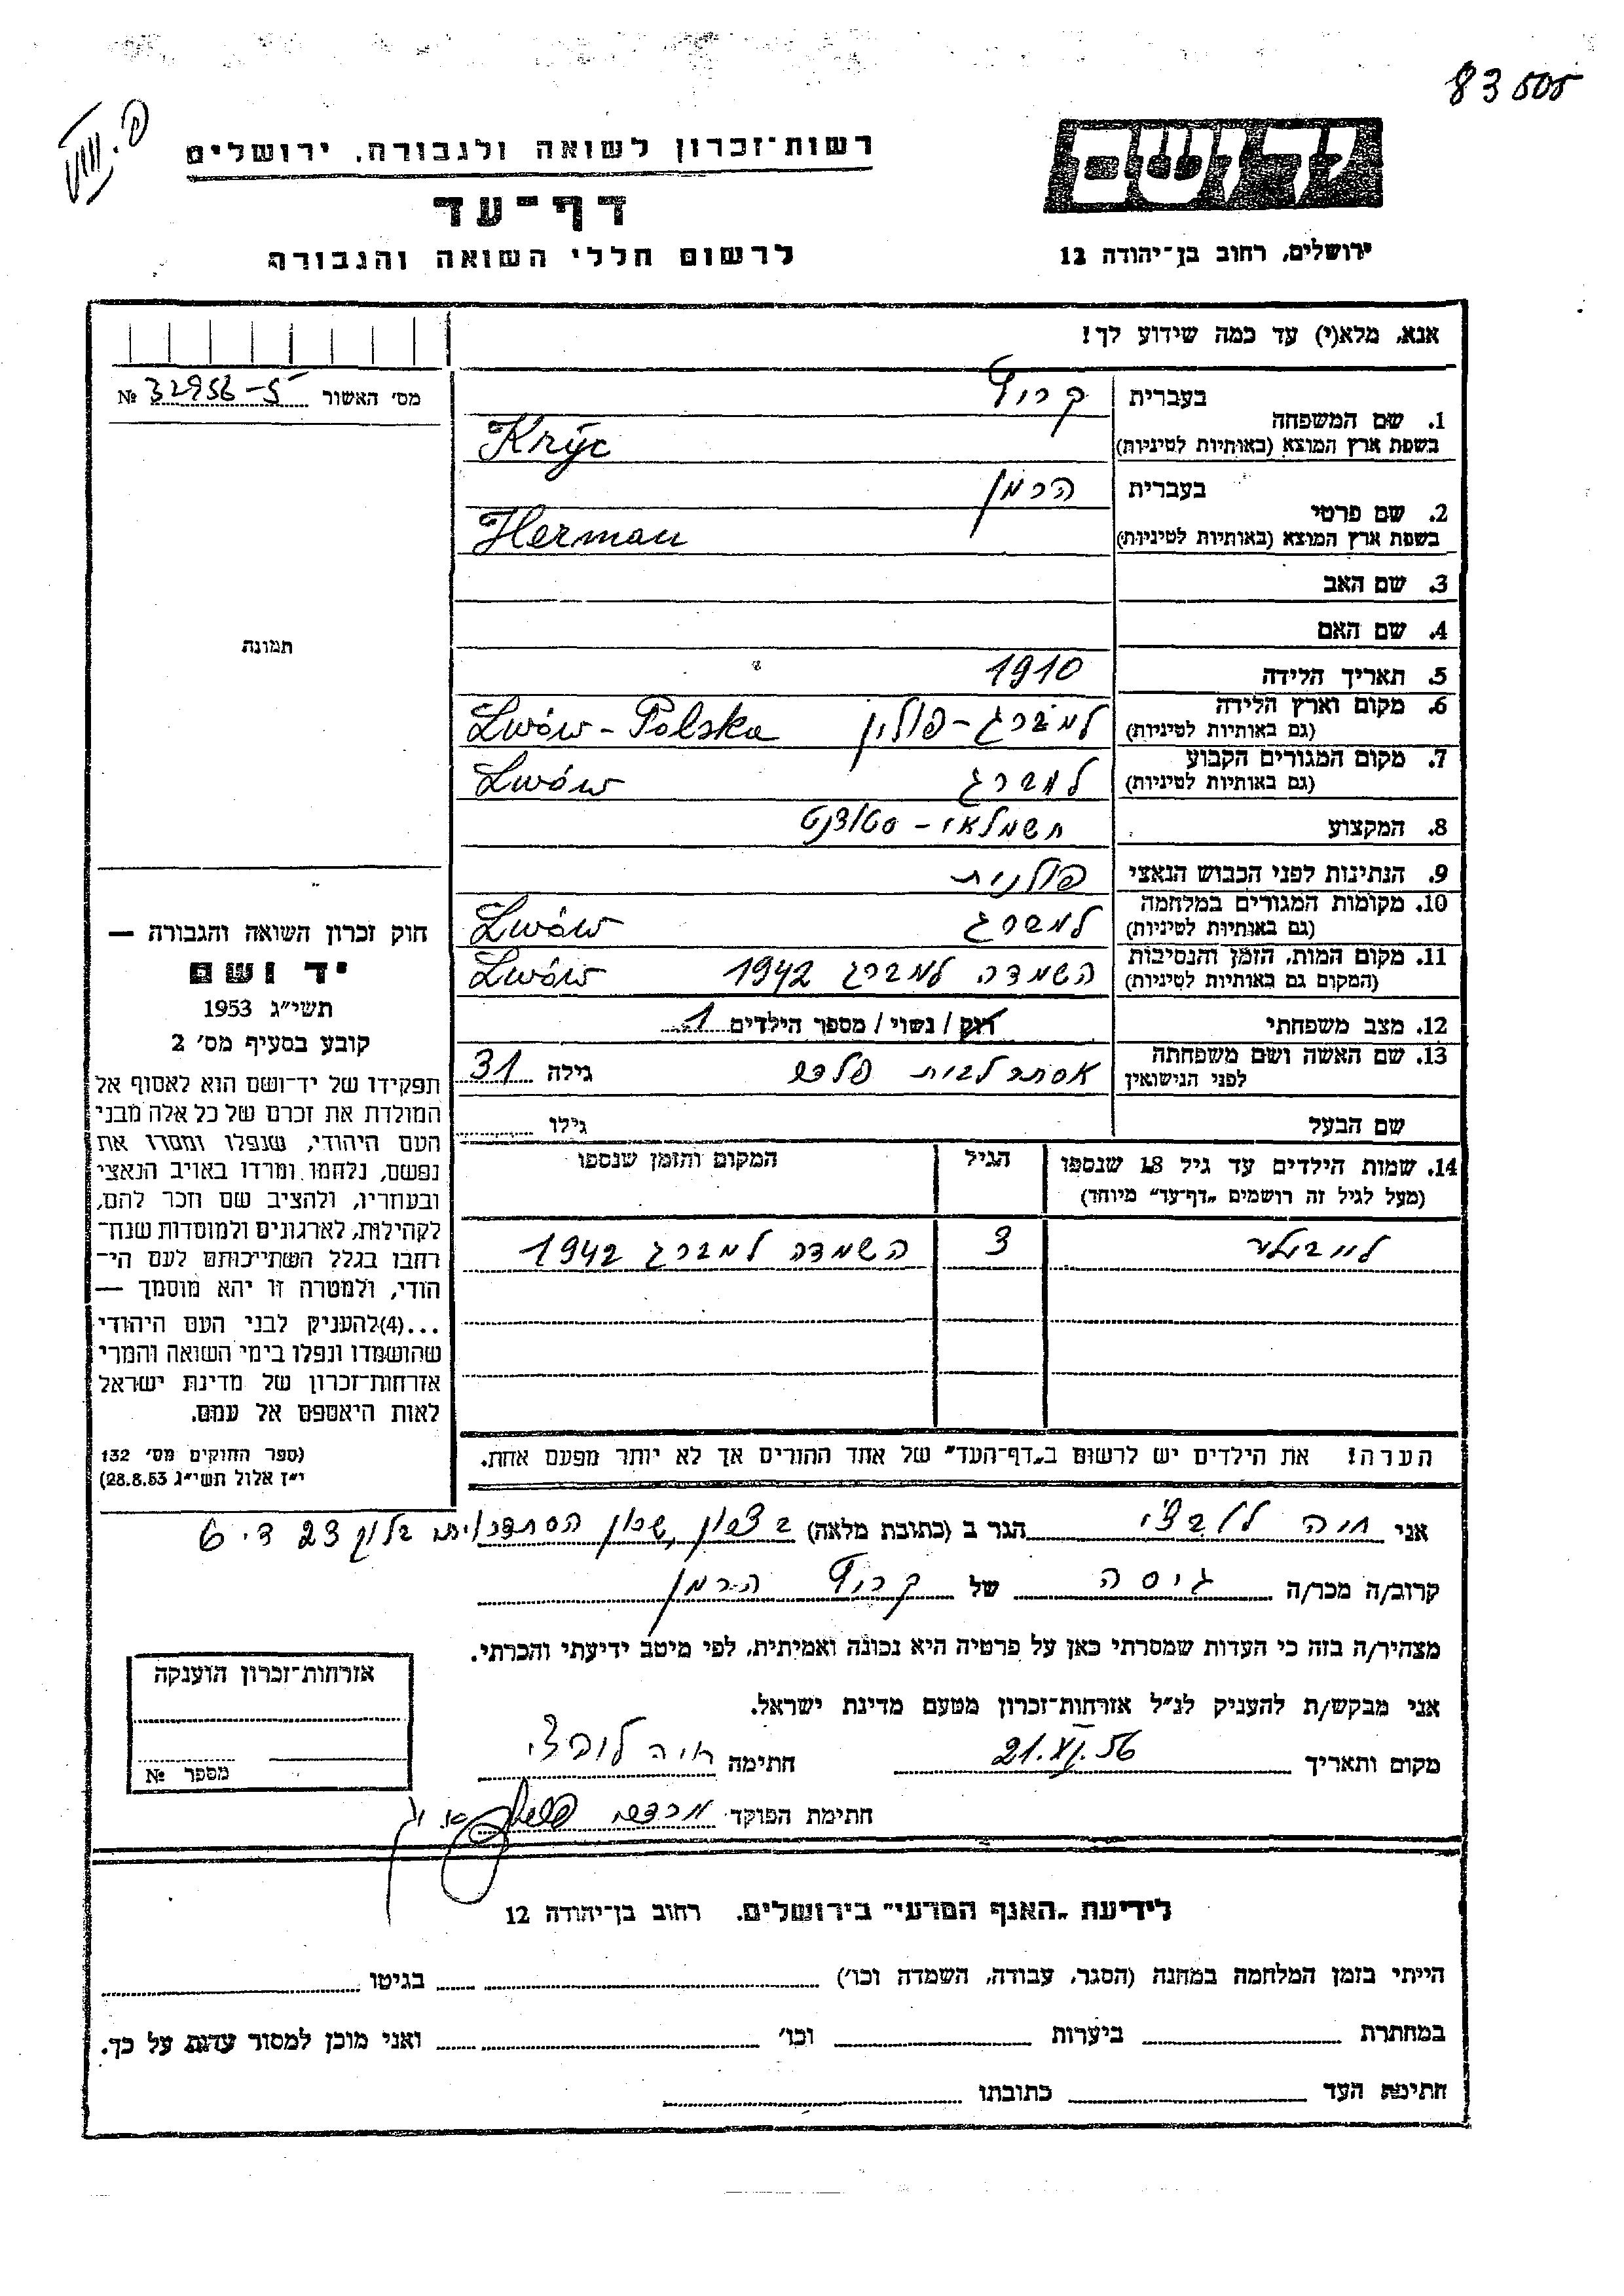 83505
רשות־זכרון לשואה ולגבורה, ירושלים
דף־עד
לרשום חללי השואה והגבורה
יד ושם
ירושלים, רחוב בן־יהודה 12
אנא, מלא(י) עד כמה שידוע לך!
מס׳ האשור № 32956-5
1. שם המשפחה
בעברית
בשפת ארץ המוצא (באותיות לטיניות) Kryc
2. שם פרטי
בעברית הרמן
בשפת ארץ המוצא (באותיות לטיניות) Herman
3. שם האב
4. שם האם
5. תאריך הלידה 1910
6. מקום וארץ הלידה (גם באותיות לטיניות) למברג - פולין Lwów - Polska
7. מקום המגורים הקבוע (גם באותיות לטיניות) למברג Lwów
8. המקצוע חשמלאי - סטודנט
9. הנתינות לפני הכבוש הנאצי פולנית
10. מקומות המגורים במלחמה (גם באותיות לטיניות) למברג Lwów
11. מקום המות, הזמן והנסיבות (המקום גם באותיות לטיניות) השמדה למברג 1942 Lwów
12. מצב משפחתי רוק / נשוי / מספר הילדים 1
13. שם האשה ושם משפחתה לפני הנישואין אסתר גילה 31
שם הבעל גילו
14. שמות הילדים עד גיל 18 שנספו הגיל המקום והזמן שנספו
(מעל לגיל זה רושמים „דף־עד״ מיוחד)
3 השמדה למברג 1942
הערה! את הילדים יש לרשום ב„דף־העד״ של אחד ההורים אך לא יותר מפעם אחת.
תמונה
חוק זכרון השואה והגבורה —
יד ושם
תשי״ג 1953
קובע בסעיף מס׳ 2
תפקידו של יד־ושם הוא לאסוף אל
המולדת את זכרם של כל אלה מבני
העם היהודי, שנפלו ומסרו את
נפשם, נלחמו ומרדו באויב הנאצי
ובעוזריו, ולהציב שם וזכר להם,
לקהילות, לארגונים ולמוסדות שנח־
רחבו בגלל השתייכותם לעם הי־
הודי, ולמטרה זו יהא מוסמך —
...(4) להעניק לבני העם היהודי
שהושמדו ונפלו בימי השואה והמרי
אזרחות־זכרון של מדינת ישראל
לאות היאספם אל עמם.
(ספר החוקים מס׳ 132
י״ז אלול תשי״ג 28.8.53)
אני חיה הגר ב (כתובת מלאה) שכון הסתדרות בלוק 23 ד׳ 6
קרוב/ה מכר/ה גיסה של הרמן
מצהיר/ה בזה כי העדות שמסרתי כאן על פרטיה היא נכונה ואמיתית, לפי מיטב ידיעתי והכרתי.
אני מבקש/ת להעניק לנ״ל אזרחות־זכרון מטעם מדינת ישראל.
מקום ותאריך 21.XI.56 חתימה חיה
חתימת הפוקד
אזרחות־זכרון הוענקה
מספר №
לידיעת „האגף המדעי״ בירושלים. רחוב בן־יהודה 12
הייתי בזמן המלחמה במחנה (הסגר, עבודה, השמדה וכו׳) בגיטו
במחתרת ביערות וכו׳ ואני מוכן למסור עדות על כך.
חתימת העד כתובתו